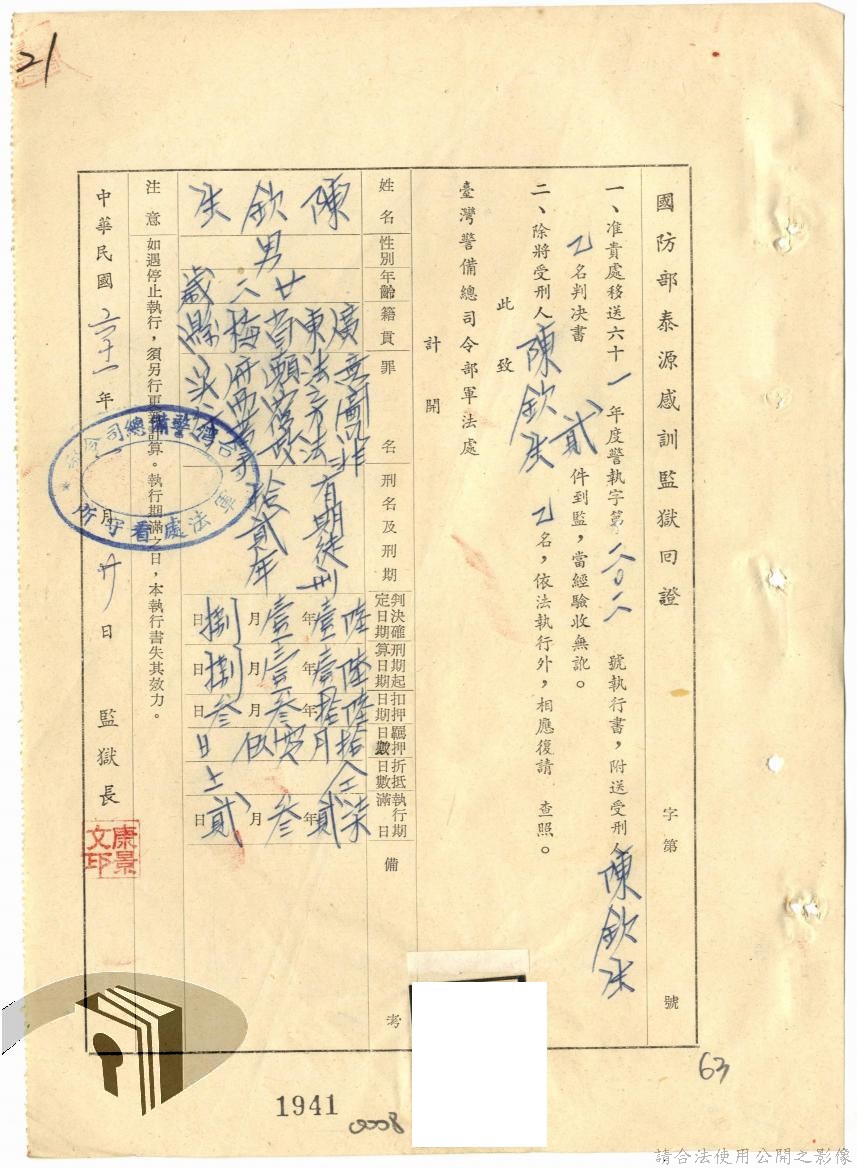 21
國防部泰源感訓監獄回證　字第　號
一、准貴處移送六十一年度警執字第二〇二號執行書，附送受刑人陳欽生
乙名判决書貳件到監，當經驗收無訛。
二、除將受刑人陳欽生乙名，依法執行外，相應復請　查照。
此致
臺灣警備總司令部軍法處
計開
姓名　性別　年齡　籍貫　罪名　刑名及刑期　判決確定日期　刑期起算日期　扣押日期　羈押日數　折抵日數　執行期滿日　備考
陳欽生
男
廿二歲
廣東省梅縣
意圖以非法之方法顛覆政府而著手
有期徒刑拾貳年
陸壹年壹月捌日
陸壹年壹月捌日
陸拾年叁月叁日
拾月零伍日
仝上
柒貳年叁月貳日
注意　如遇停止執行，須另行更新計算。執行期滿之日，本執行書失其效力。
中華民國六十一年　月廿日　監獄長
康景文印
台灣警備總司令部
軍法處看守所
63
1941
0008
請合法使用公開之影像